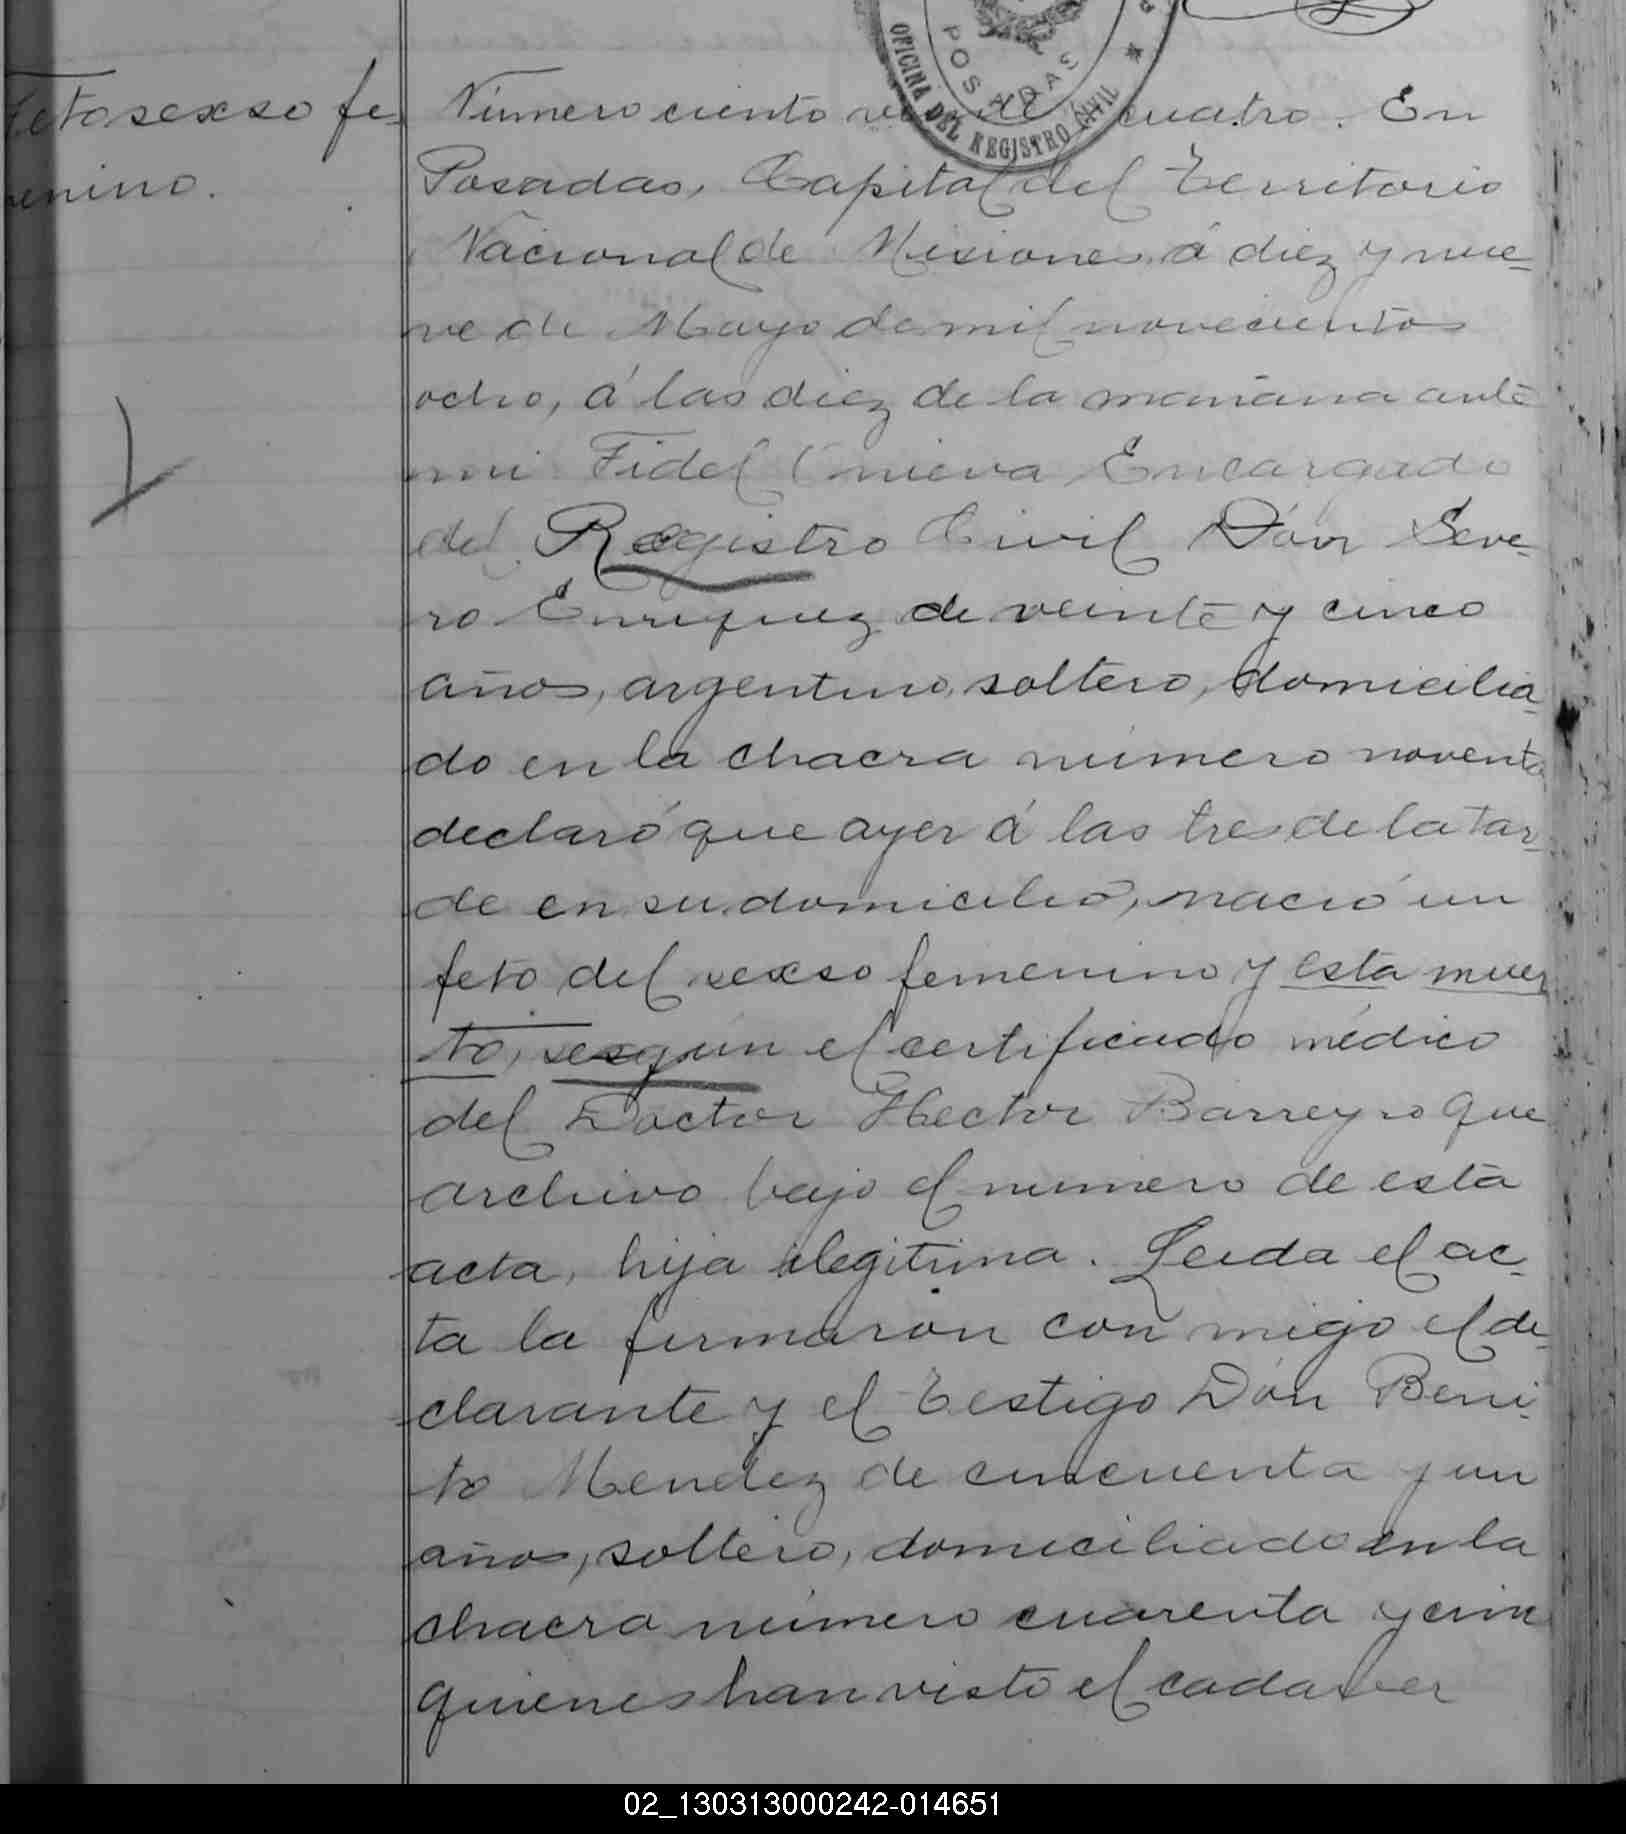 Feto sexso fe-
menino.
POSADAS
OFICINA DEL REGISTRO CIVIL
Número ciento veinte cuatro. En
Posadas, Capital del Territorio
Nacional de Misiones, á diez y nue-
ve de Mayo de mil novecientos
ocho, á las diez de la mañana ante
mi Fidel Encargado
del Registro Civil Dón Seve-
ro Enriquez de veinte y cinco
años, argentino, soltero, domicilia-
do en la chacra número noventa
declaró que ayer á las tres de la tar-
de en su domicilio, nació un
feto del sexso femenino y esta muer
to, sesgún el certificado médico
del Doctor Hector Barreyro que
archivo bajo el numero de esta
acta, hija ilegitima. Leida el ac-
ta la firmaron con migo el de-
clarante y el Testigo Dón Beni-
to Mendez de cincuenta y un
años, soltero, domiciliado en la
chacra número cuarenta y cinc
quienes han visto el cadaver
02_130313000242-014651